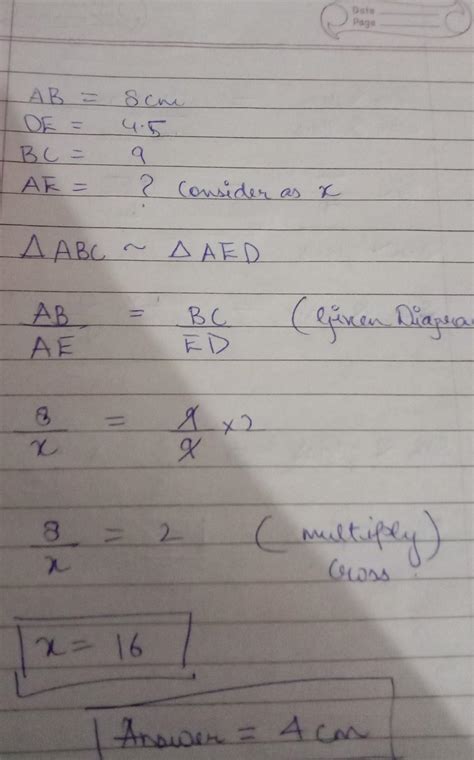 Date
Page
AB = 8cm
DE = 4.5
BC = 9
AE = ? Consider as x
△ABC ~ △AED
AB/AE = BC/ED (Given Diagra
8/x = 9/9 ×2
8/x = 2 (multiply) cross
x = 16
Answer = 4 cm